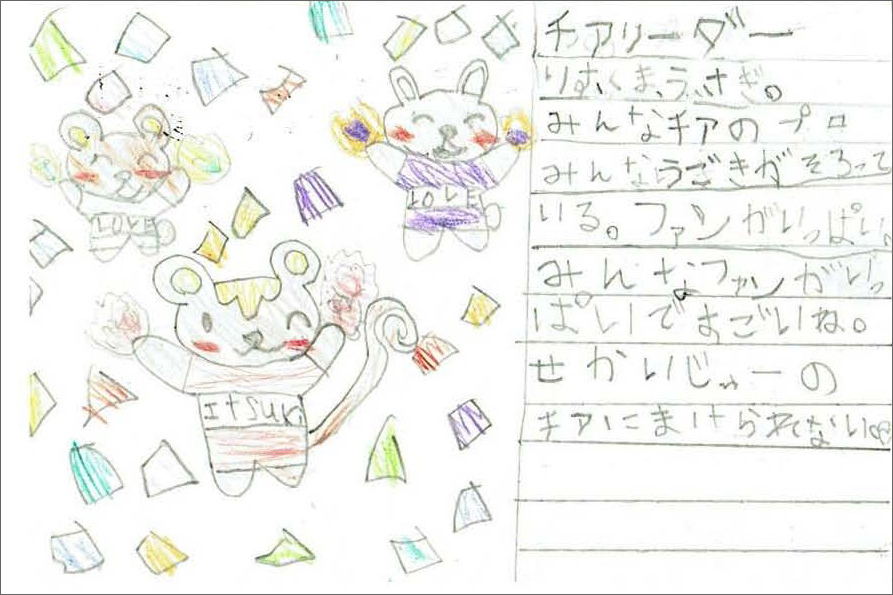 チアリーダー
りす、くま、うさぎ。
みんなチアのプロ
みんなうごきがそろって
いる。ファンがいっぱい。
みんなファンがいっ
ぱいですごいね。
せかいじゅーの
チアにまけられない♡
LOVE
LOVE
ITSUKI